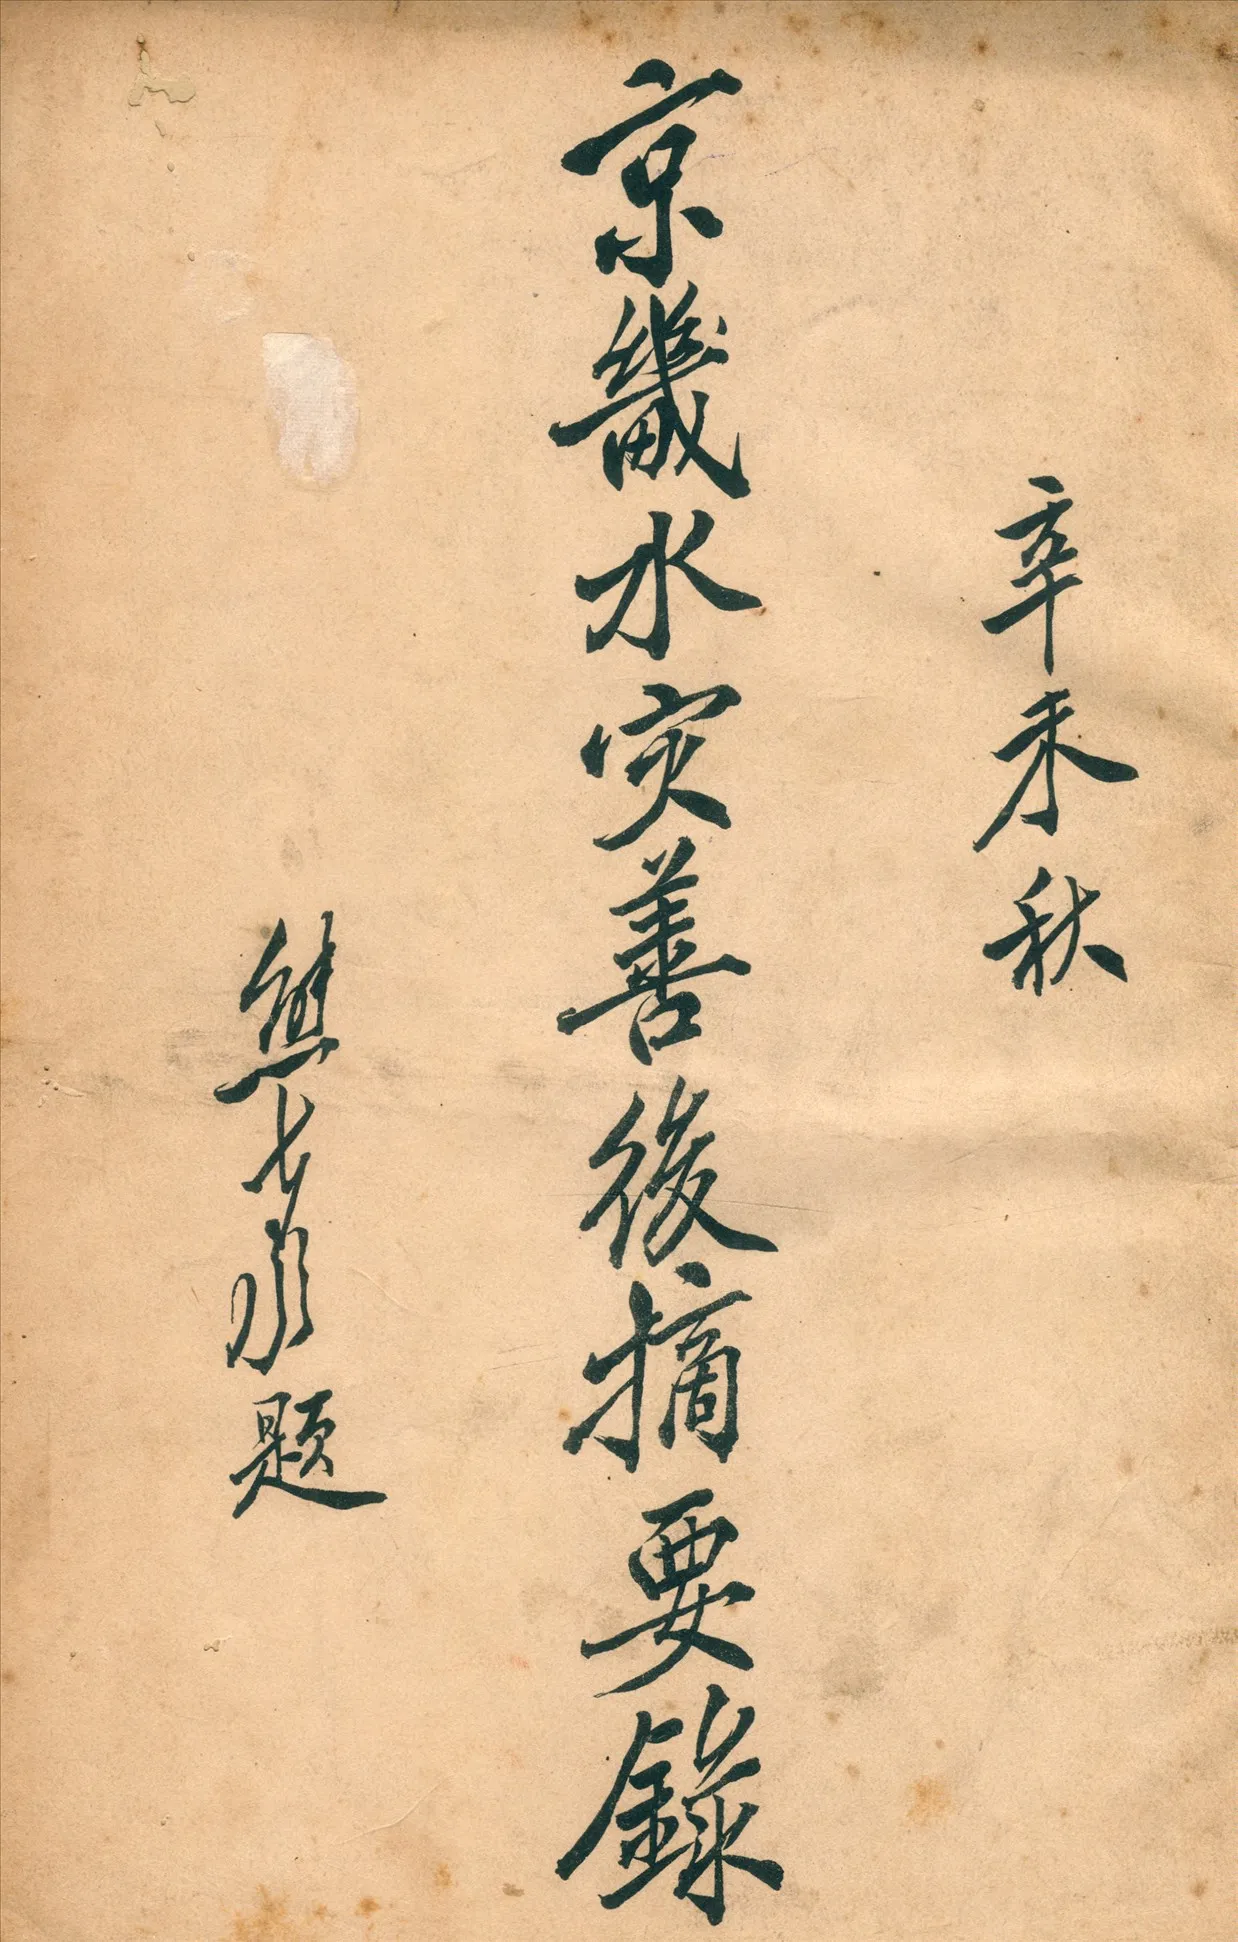 辛未秋
京畿水災善後摘要錄
熊希齡題